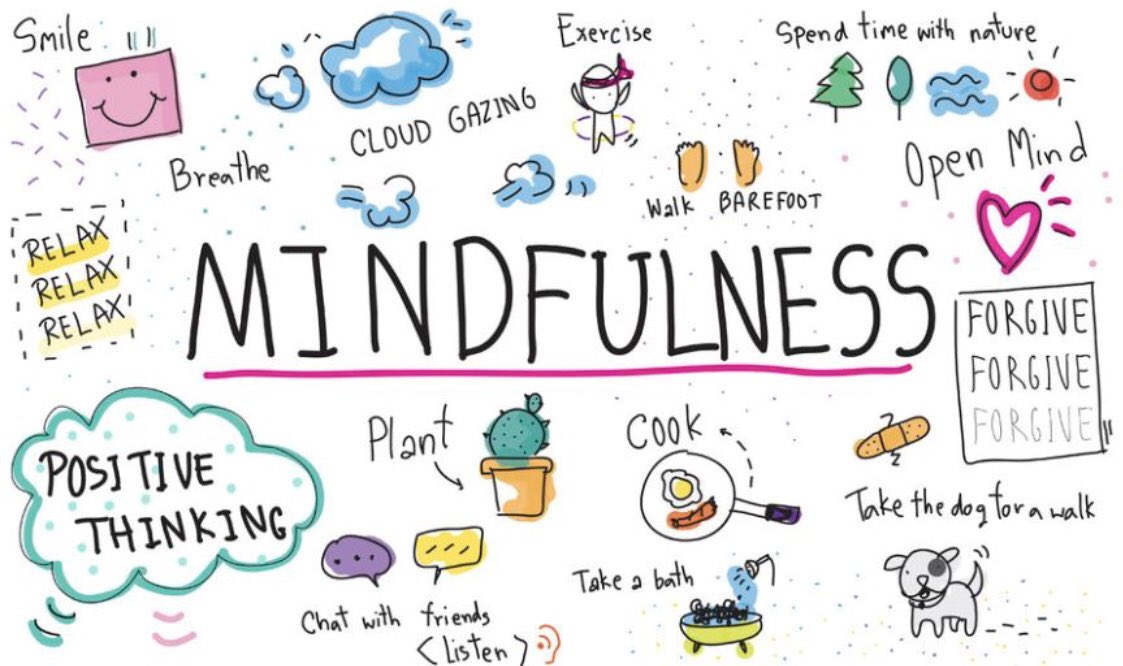 Smile
Breathe
CLOUD GAZING
Exercise
Spend time with nature
Walk BAREFOOT
Open Mind
RELAX
RELAX
RELAX
MINDFULNESS
FORGIVE
FORGIVE
FORGIVE
POSITIVE
THINKING
Plant
Cook
z
z
Take the dog for a walk
Chat with friends
<Listen>
Take a bath